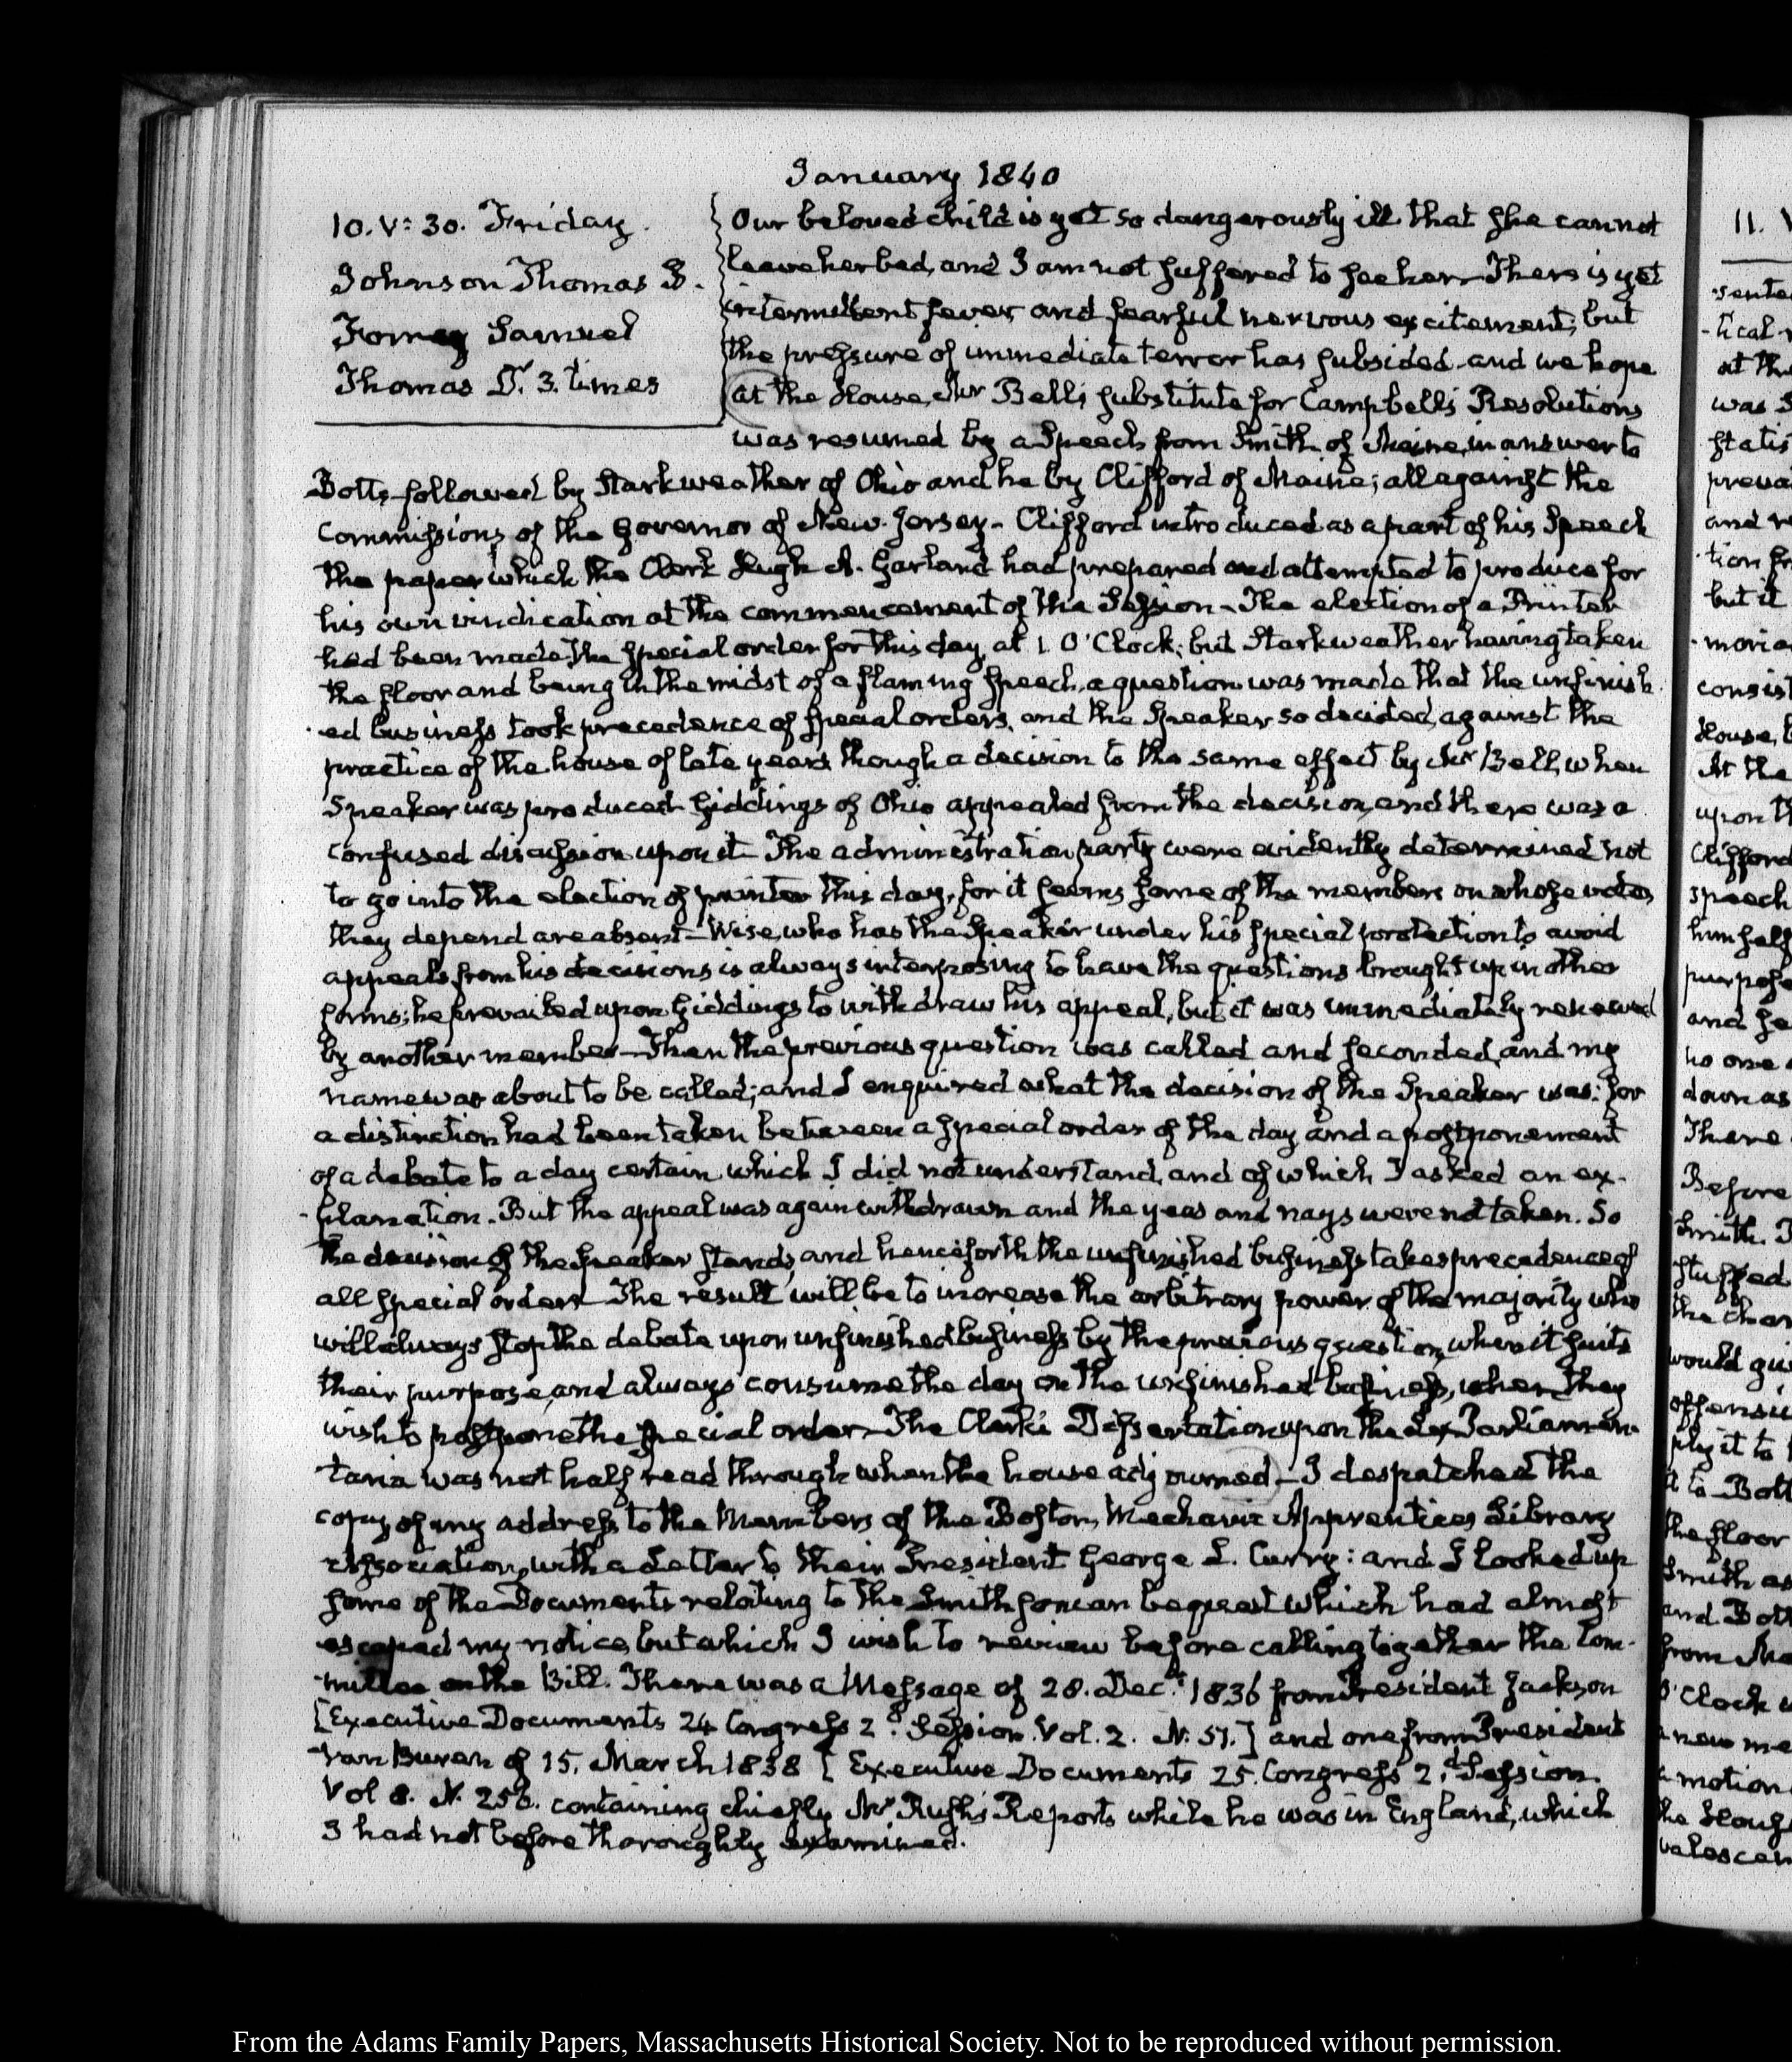 January 1840
10. V: 30. Friday.
Johnson Thomas B.
Forney Samuel
Thomas Dr. 3. times
Our beloved child is yet so dangerously ill that she cannot
leave her bed, and I am not suffered to see her. There is yet
intermittent fever, and fearful nervous excitement; but
the pressure of immediate terror has subsided and we hope
at the House, Mr Bell's substitute for Campbell's Resolutions
was resumed by a Speech from Smith of Maine, in answer to
Botts, followed by Starkweather of Ohio and he by Clifford of Maine; all against the
Commissions of the Governor of New-Jersey- Clifford introduced as a part of his Speech
the paper which the Clerk Hugh A. Garland had prepared and attempted to produce for
his own vindication at the commencement of the Session- The election of a Printer
had been made the special order for this day, at 1 O'Clock; but Starkweather having taken
the floor and being in the midst of a flaming speech, a question was made that the unfinish-
ed business took precedence of special orders, and the Speaker so decided, against the
practice of the house of late years though a decision to the same effect by Mr Bell, when
Speaker was produced- Giddings of Ohio appealed from the decision, and there was a
confused discussion upon it- The administration party were evidently determined not
to go into the election of printer this day, for it seems some of the members on whose votes
they depend are absent- Wise, who has the Speaker under his special protection to avoid
appeals from his decisions is always interposing to have the questions brought up in other
forms; he prevailed upon Giddings to withdraw his appeal, but it was immediately renewed
by another member- Then the previous question was called and seconded, and my
name was about to be called; and I enquired what the decision of the Speaker was: for
a distinction had been taken between a special order of the day and a postponement
of a debate to a day certain, which I did not understand, and of which I asked an ex-
-planation. But the appeal was again withdrawn and the yeas and nays were not taken. So
the decision of the Speaker stands, and henceforth the unfinished business takes precedence of
all special orders- The result will be to increase the arbitrary power of the majority who
will always stop the debate upon unfinished business by the previous question, when it suits
their purpose, and always consume the day on the unfinished business, when they
wish to postpone the special order- The Clerk's Dissertation upon the Lex Parliamen-
taria was not half read through when the house adjourned- I despatched the
copy of my address to the Members of the Boston, Mechanic Apprentices Library
Association, with a Letter to their President George L. Curry: and I looked up
some of the Documents relating to the Smithsonian bequest which had almost
escaped my notice, but which I wish to review before calling together the Com-
-mittee on the Bill. There was a Message of 28. Decr. 1836 from President Jackson
[Executive Documents 24 Congress 2d. Session. Vol. 2. N. 51.] and one from President
Van Buren of 15. March 1838 [Executive Documents 25. Congress 2d. Session.
Vol 8. N. 256. containing chiefly Mr Rush's Reports while he was in England, which
I had not before thoroughly examined.
11.
From the Adams Family Papers, Massachusetts Historical Society. Not to be reproduced without permission.